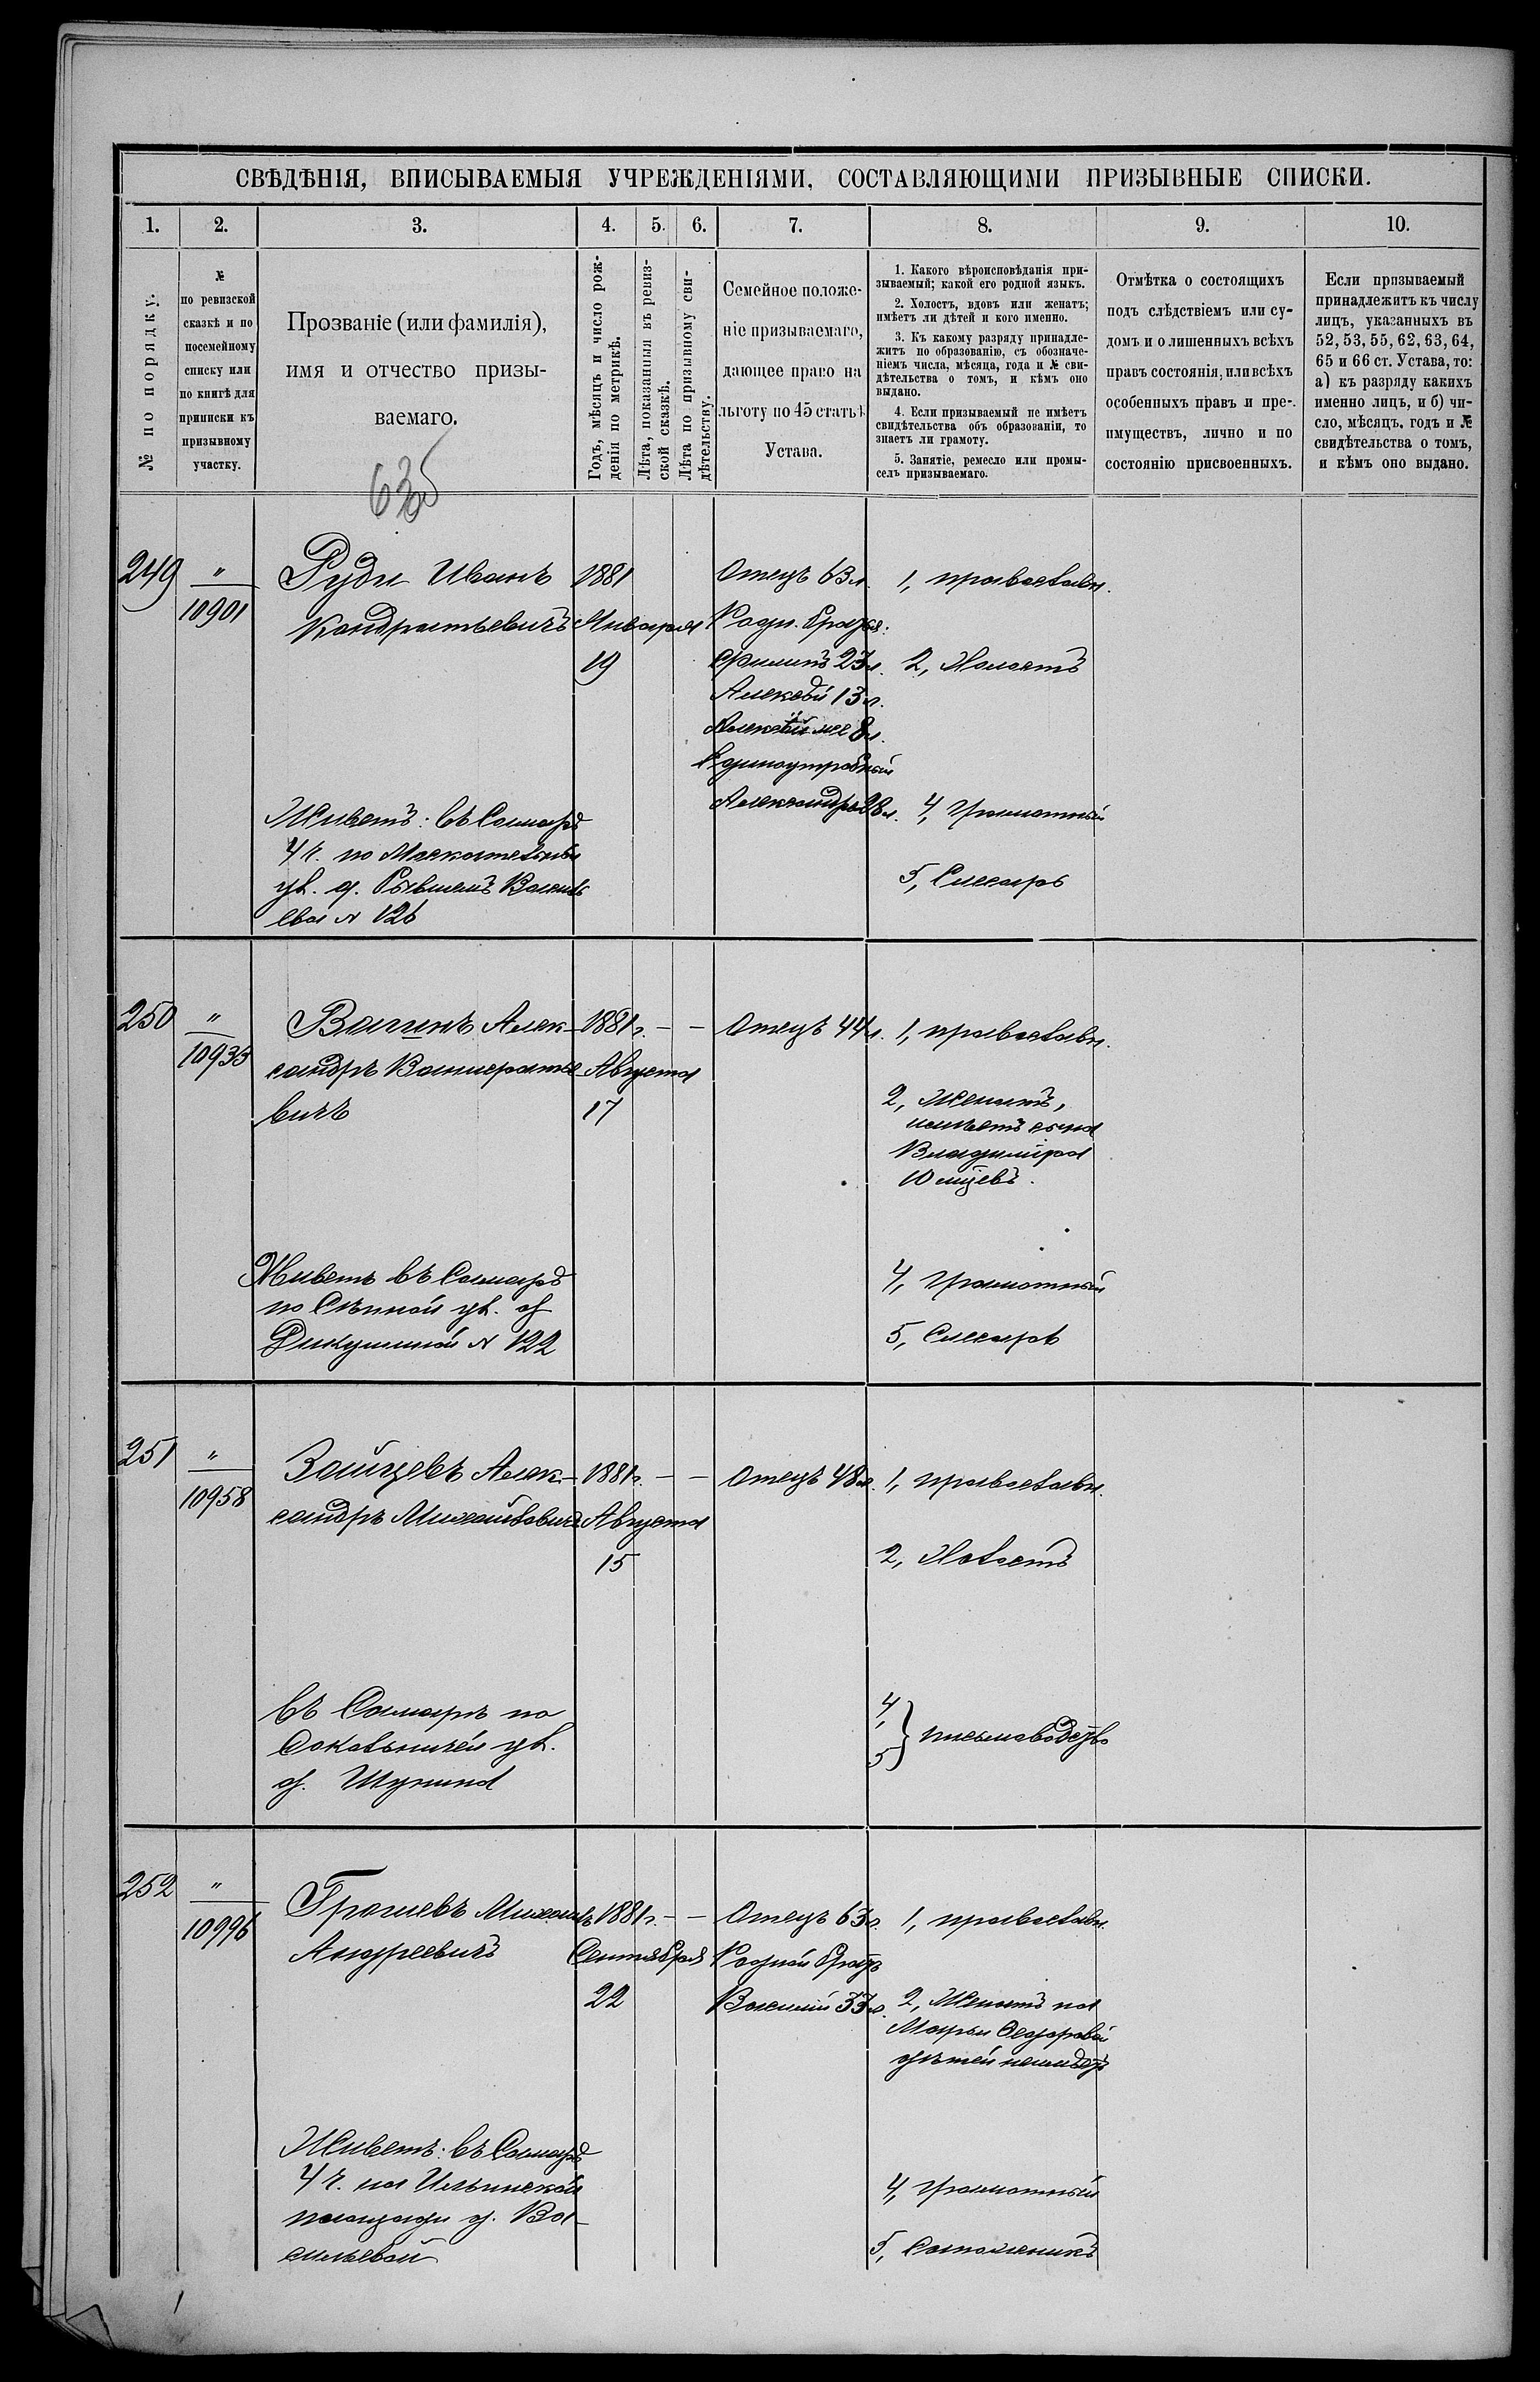 СВѢДѢНІЯ, ВПИСЫВАЕМЫЯ УЧРЕЖДЕНІЯМИ, СОСТАВЛЯЮЩИМИ ПРИЗЫВНЫЕ СПИСКИ.
1. 2. 3. 4. 5. 6. 7. 8. 9. 10.
№ по порядку.
№
по ревизской
сказкѣ и по
посемейному
списку или
по книгѣ для
приписки къ
призывному
участку.
Прозваніе (или фамилія),
имя и отчество призы-
ваемаго.
Годъ, мѣсяцъ и число рож-
денія по метрикѣ.
Лѣта, показанныя въ ревиз-
ской сказкѣ.
Лѣта по призывному сви-
дѣтельству.
Семейное положе-
ніе призываемаго,
дающее право на
льготу по 45 статьѣ
Устава.
1. Какого вѣроисповѣданія при-
зываемый; какой его родной языкъ.
2. Холостъ, вдовъ или женатъ;
имѣетъ ли дѣтей и кого именно.
3. Къ какому разряду принадле-
житъ по образованію, съ обозначе-
ніемъ числа, мѣсяца, года и № сви-
дѣтельства о томъ, и кѣмъ оно
выдано.
4. Если призываемый не имѣетъ
свидѣтельства объ образованіи, то
знаетъ ли грамоту.
5. Занятіе, ремесло или промы-
селъ призываемаго.
Отмѣтка о состоящихъ
подъ слѣдствіемъ или су-
домъ и о лишенныхъ всѣхъ
правъ состоянія, или всѣхъ
особенныхъ правъ и пре-
имуществъ, лично и по
состоянію присвоенныхъ.
Если призываемый
принадлежитъ къ числу
лицъ, указанныхъ въ
52, 53, 55, 62, 63, 64,
65 и 66 ст. Устава, то:
а) къ разряду какихъ
именно лицъ, и б) чи-
сло, мѣсяцъ, годъ и №
свидѣтельства о томъ,
и кѣмъ оно выдано.
249
"
10901
Руди Иванъ
Кондратьевичъ
1881
Января
19
Отецъ 63 л.
Родн. братья:
Филипъ 23 л.
Алексѣй 13 л.
8 л.
Единоутробный
Александръ 28 л.
1, православн.
2, Холостъ
4, Грамотный
5, Слесарь
Живетъ: въ Самарѣ
4 ч. по Москательной
ул. д.
№ 126
250
"
10935
Вагинъ Алек-
сандръ
вичъ
1881 г. – –
Августа
17
Отецъ 44 л.
1, православн.
2, Женатъ,
имѣетъ сына
Владиміра
10 мѣсяцевъ.
4, Грамотный
5, Слесарь
Живетъ въ Самарѣ
по Сѣнной ул. д
Дикушиной № 122
251
"
10958
Зайцевъ Алек-
сандръ Михайловичъ
1881 г. – –
Августа
15
Отецъ 48 л.
1, православн.
2, Холостъ
4,
5
письмоводство
въ Самарѣ по
Сокольничей ул.
д. Шунина
252
"
10996
Грачевъ Михаилъ
Андреевичъ
1881 г. – –
Сентября
22
Отецъ 63 л.
Родной братъ
Василій 33 л.
1, православн.
2, Женатъ на
Марьи Федоровой
дѣтей неимѣетъ
4, Грамотный
5, Сапожникъ
Живетъ: въ Самарѣ
4 ч. на Ильинской
площади д. Ва-
сильевой